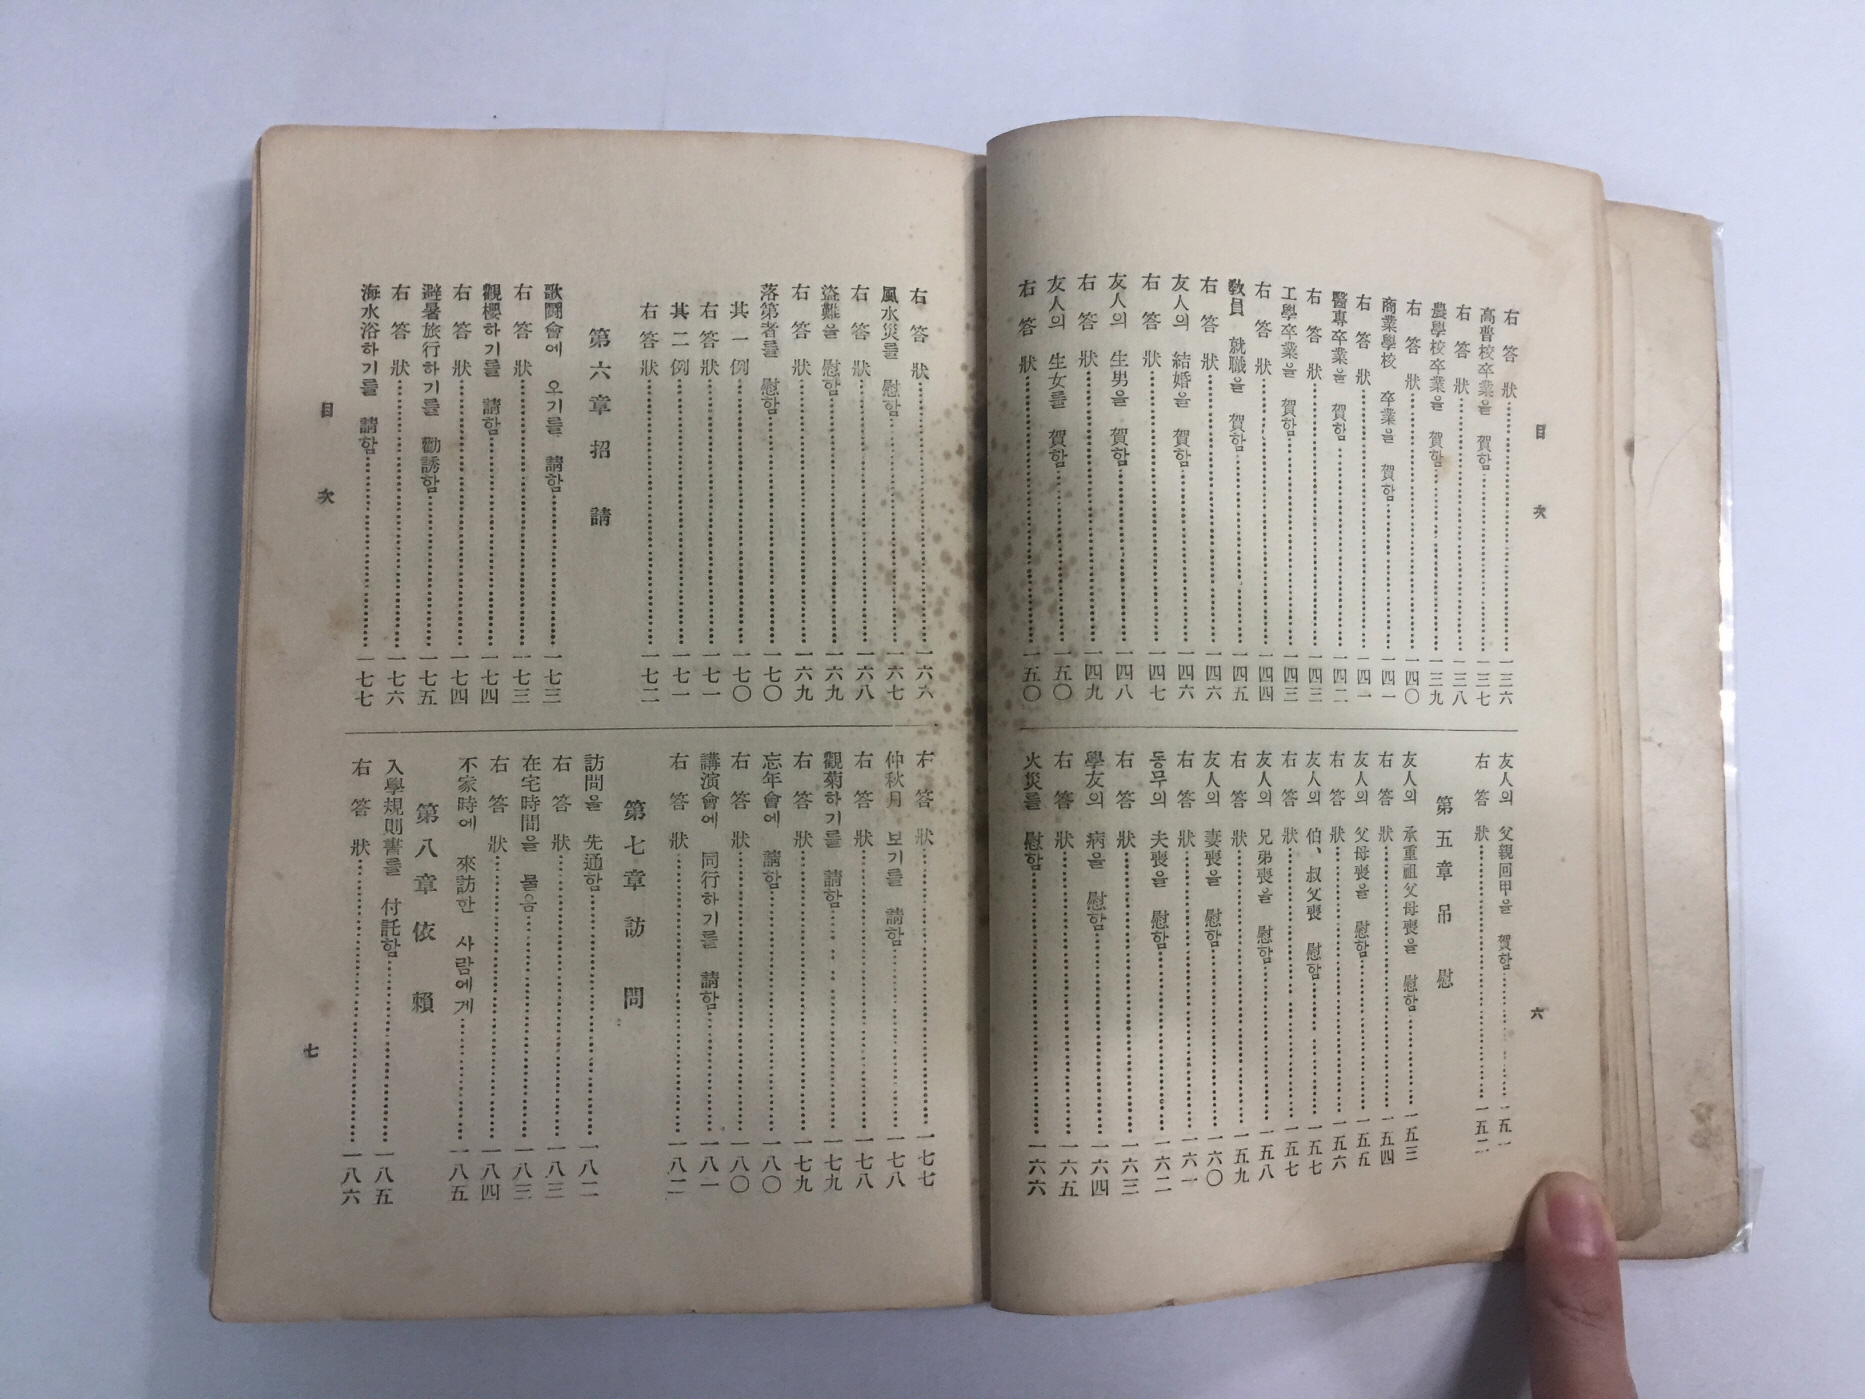 目次
六
右答狀…一三六
高普校卒業을 賀함…一三七
右答狀…一三八
農學校卒業을 賀함…一三九
右答狀…一四〇
商業學校 卒業을 賀함…一四一
右答狀…一四一
醫專卒業을 賀함…一四二
右答狀…一四三
工學卒業을 賀함…一四三
右答狀…一四四
敎員 就職을 賀함…一四五
右答狀…一四六
友人의 結婚을 賀함…一四六
右答狀…一四七
友人의 生男을 賀함…一四八
右答狀…一四九
友人의 生女를 賀함…一五〇
右答狀…一五〇
友人의 父親回甲을 賀함…一五一
右答狀…一五二
第五章 吊慰
友人의 承重祖父母喪을 慰함…一五三
右答狀…一五四
友人의 父母喪을 慰함…一五五
右答狀…一五六
友人의 伯、叔父喪 慰함…一五七
右答狀…一五七
友人의 兄弟喪을 慰함…一五八
右答狀…一五九
友人의 妻喪을 慰함…一六〇
右答狀…一六一
동무의 夫喪을 慰함…一六二
右答狀…一六三
學友의 病을 慰함…一六四
右答狀…一六五
火災를 慰함…一六六
右答狀…一六六
風水災를 慰함…一六七
右答狀…一六八
盜難을 慰함…一六九
右答狀…一六九
落第者를 慰함…一七〇
其一例…一七〇
右答狀…一七一
其二例…一七一
右答狀…一七二
第六章 招請
歌鬪會에 오기를 請함…一七三
右答狀…一七三
觀櫻하기를 請함…一七四
右答狀…一七四
避暑旅行하기를 勸誘함…一七五
右答狀…一七六
海水浴하기를 請함…一七七
右答狀…一七七
仲秋月 보기를 請함…一七八
右答狀…一七八
觀菊하기를 請함…一七九
右答狀…一七九
忘年會에 請함…一八〇
右答狀…一八〇
講演會에 同行하기를 請함…一八一
右答狀…一八二
第七章 訪問
訪問을 先通함…一八二
右答狀…一八三
在宅時間을 물음…一八三
右答狀…一八四
不家時에 來訪한 사람에게…一八五
第八章 依賴
入學規則書를 付託함…一八五
右答狀…一八六
目次
七